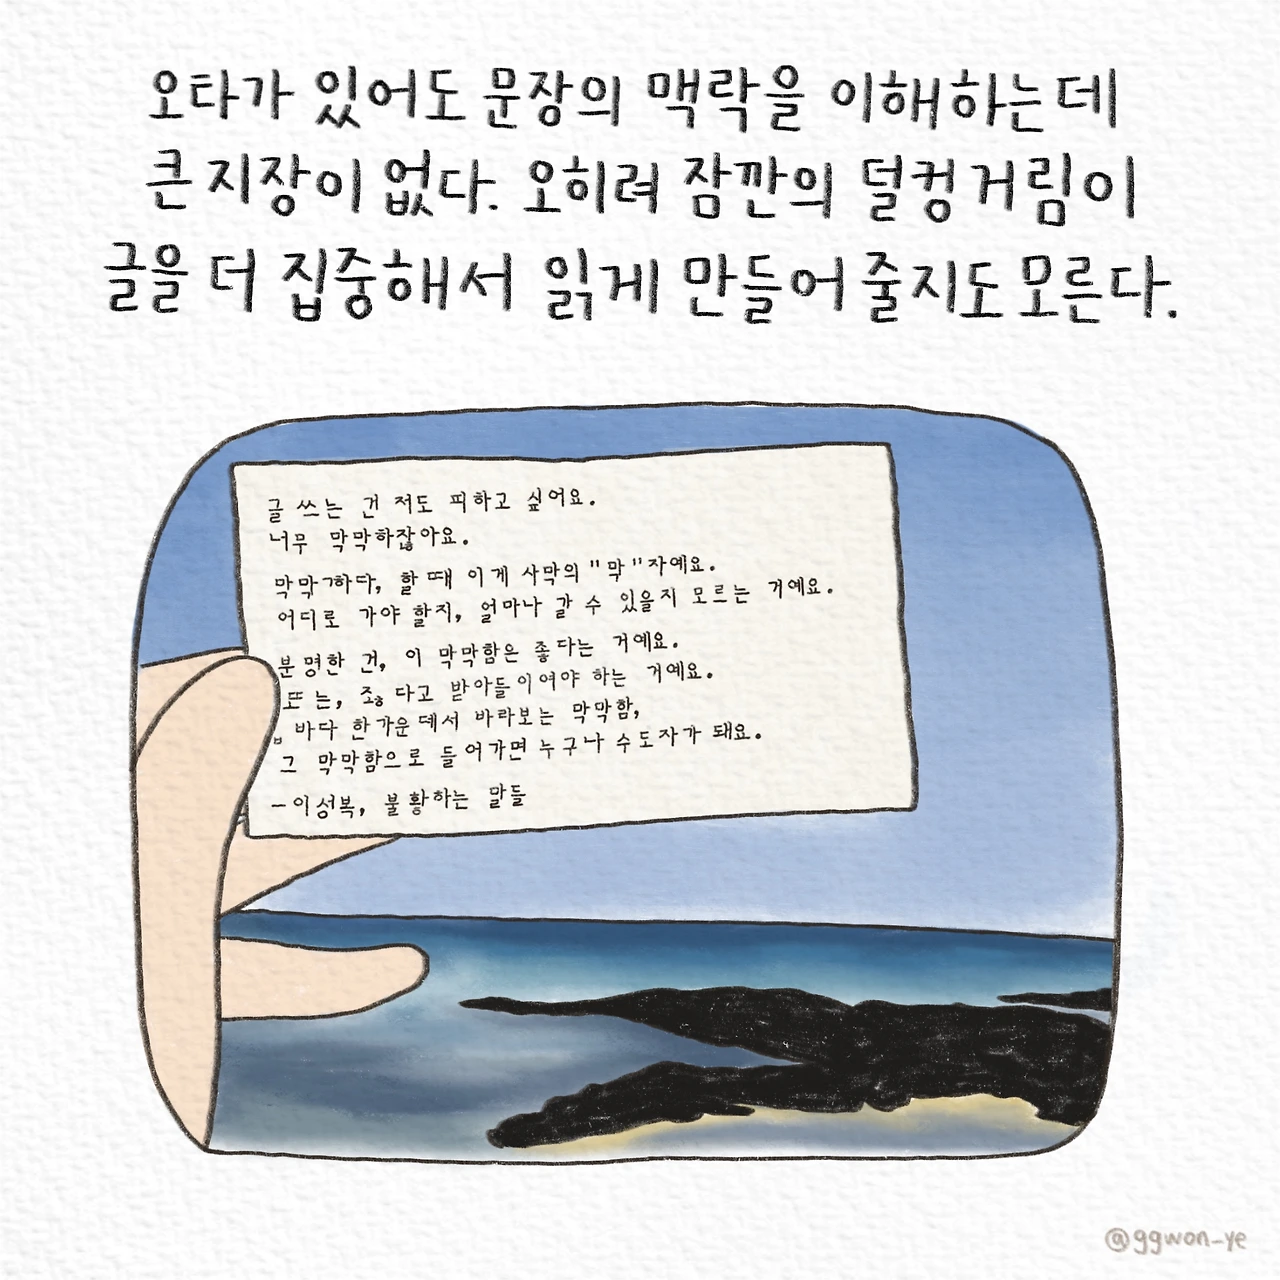 오타가 있어도 문장의 맥락을 이해하는데
큰 지장이 없다. 오히려 잠깐의 덜컹거림이
글을 더 집중해서 읽게 만들어 줄지도 모른다.
글 쓰는 건 저도 피하고 싶어요.
너무 막막하잖아요.
막막하다, 할 때 이게 사막의 "막"자예요.
어디로 가야 할지, 얼마나 갈 수 있을지 모르는 거예요.
분명한 건, 이 막막함은 좋다는 거예요.
또는, 좋다고 받아들이여야 하는 거예요.
바다 한가운데서 바라보는 막막함,
그 막막함으로 들어가면 누구나 수도자가 돼요.
- 이성복, 불황하는 말들
@ggwon_ye